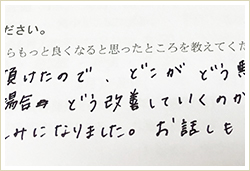 ださい。
らもっと良くなると思ったところを教えてくた
負けたので、どこが どう悪
場合 どう改善していくのか
しみになりました。お話しも